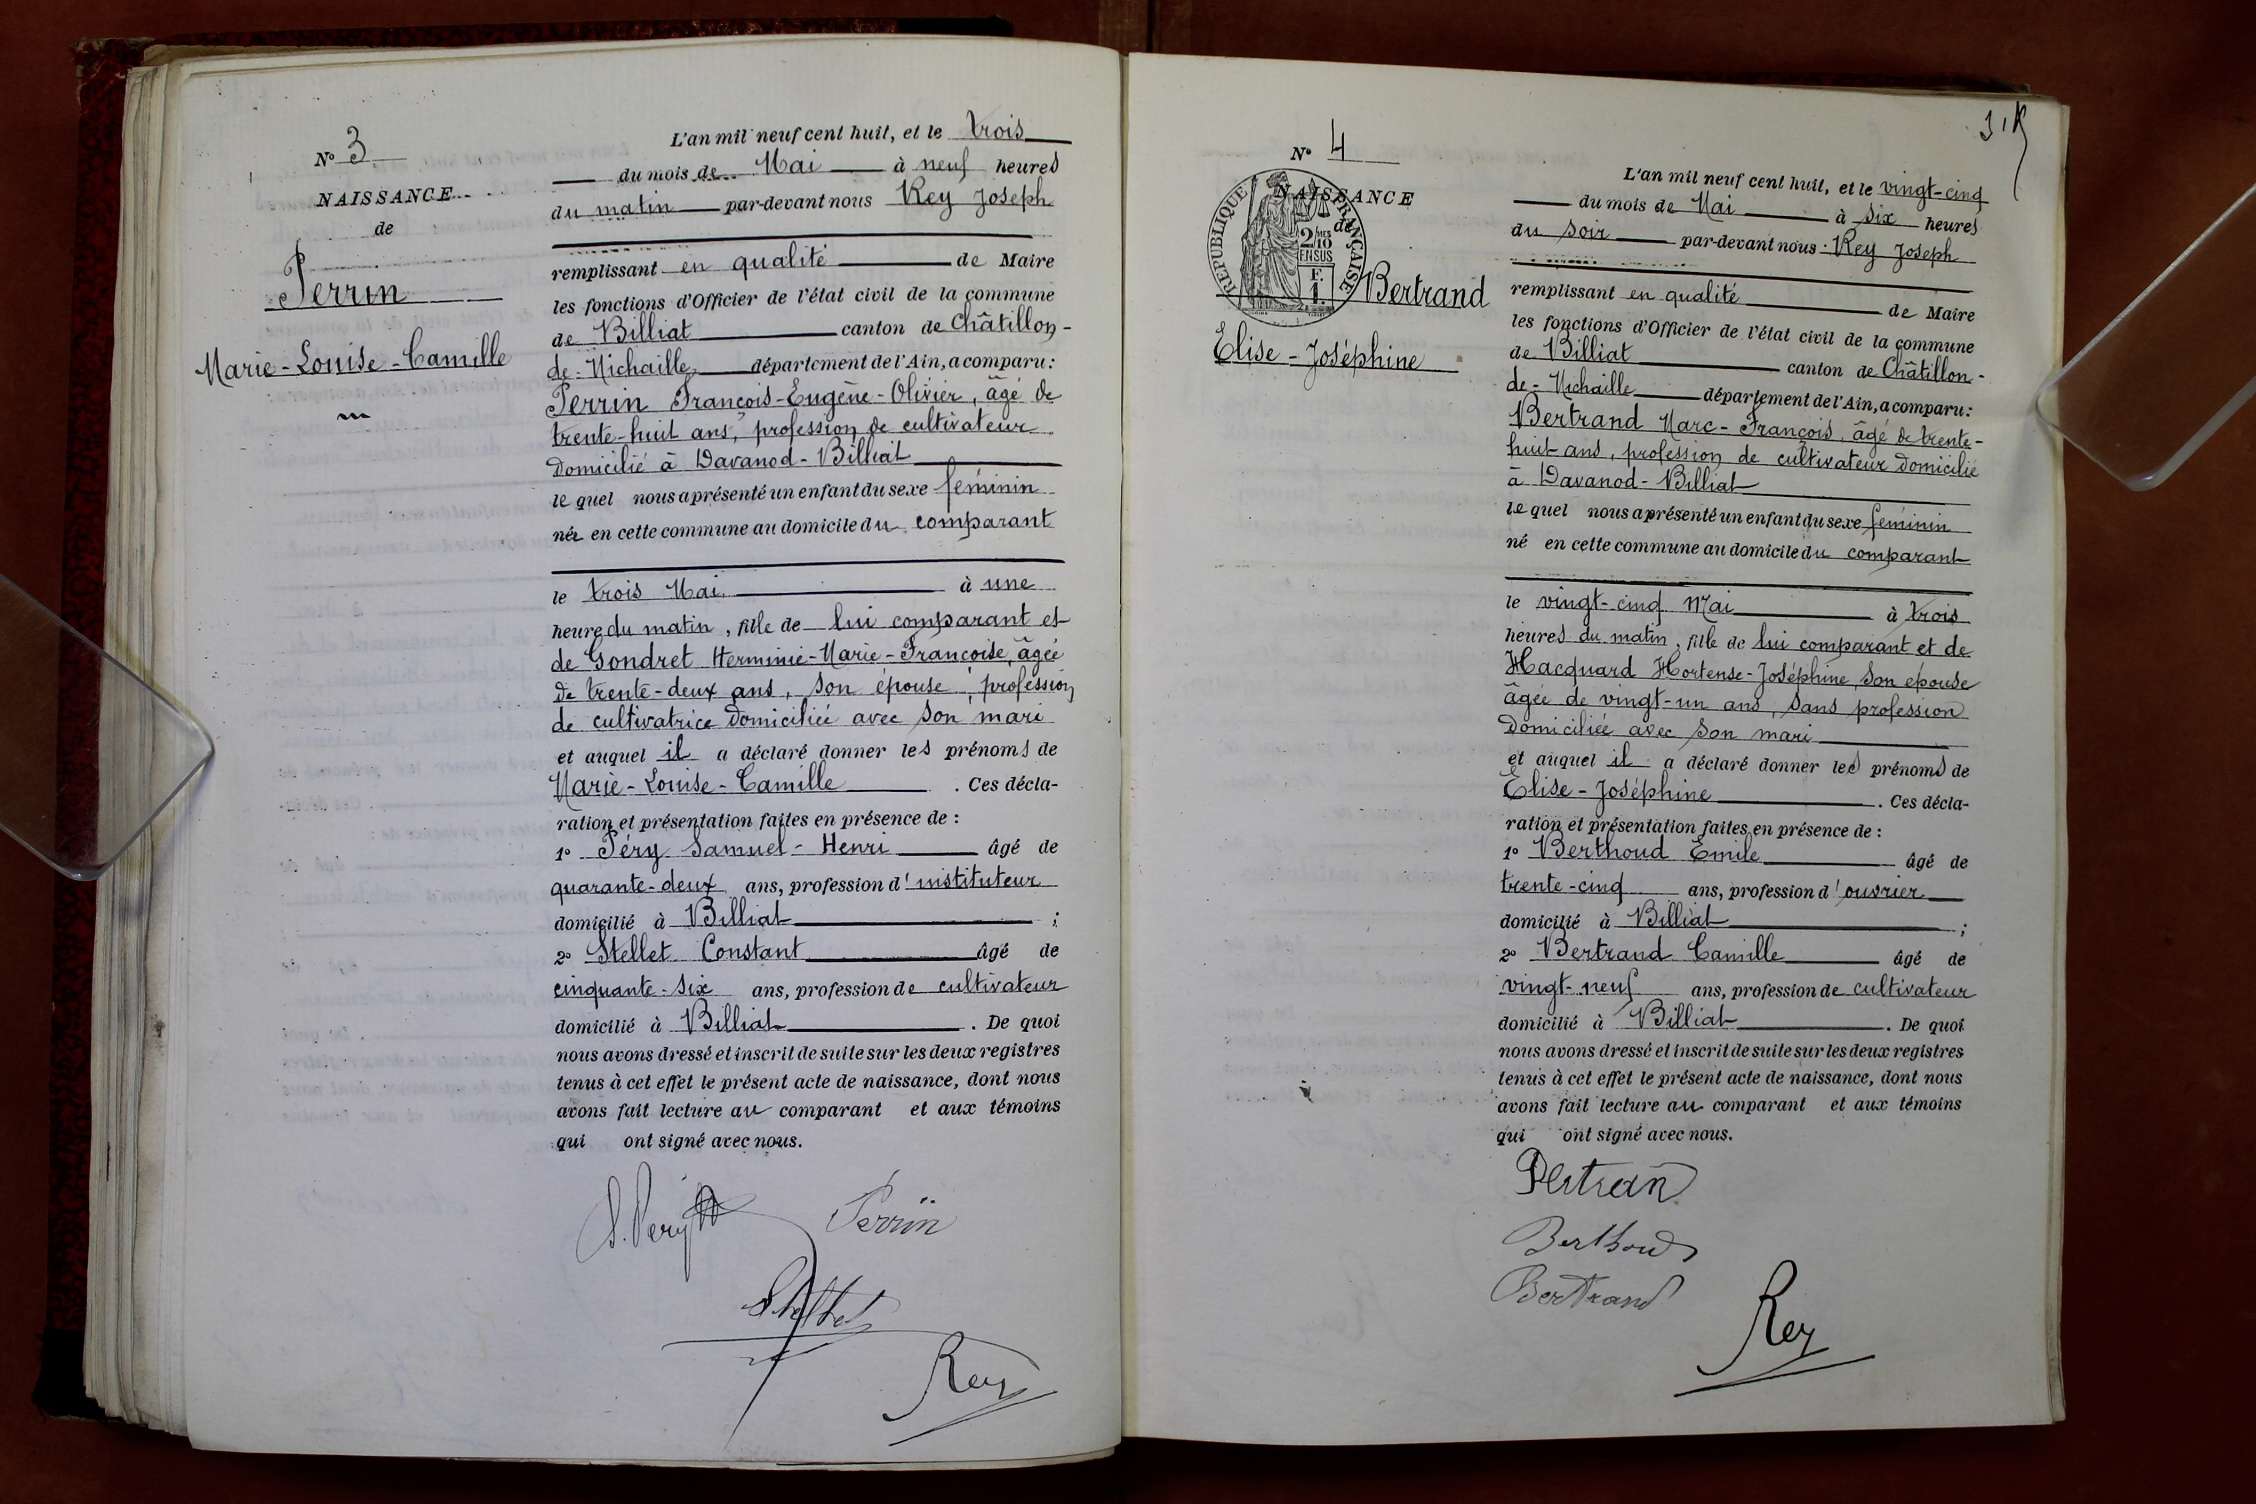 N° 3
NAISSANCE
de
Perrin
Marie-Louise-Camille
L'an mil neuf cent huit, et le trois
du mois de Mai à neuf heures
du matin par-devant nous Rey Joseph
remplissant en qualité de Maire
les fonctions d'Officier de l'état civil de la commune
de Billiat canton de Châtillon-
de-Michaille département de l'Ain, a comparu:
Perrin François-Eugène-Olivier, âgé de
trente-huit ans, profession de cultivateur
domicilié à Davanod-Billiat
le quel nous a présenté un enfant du sexe féminin
née en cette commune au domicile du comparant
le trois Mai à une
heure du matin, fille de lui comparant et
de Gondret Herminie-Marie-Françoise, âgée
de trente-deux ans, son épouse, profession
de cultivatrice domiciliée avec son mari
et auquel il a déclaré donner les prénoms de
Marie-Louise-Camille . Ces décla-
ration et présentation faites en présence de :
1° Péry Samuel-Henri âgé de
quarante-deux ans, profession d'instituteur
domicilié à Billiat ;
2° Stellet Constant âgé de
cinquante-six ans, profession de cultivateur
domicilié à Billiat . De quoi
nous avons dressé et inscrit de suite sur les deux registres
tenus à cet effet le présent acte de naissance, dont nous
avons fait lecture au comparant et aux témoins
qui ont signé avec nous.
S. Pery Perrin
Stellet
Rey
N° 4
NAISSANCE
de
RÉPUBLIQUE FRANÇAISE
2/10 MES
EN SUS
F.
1.
Bertrand
Elise-Joséphine
L'an mil neuf cent huit, et le vingt-cinq
du mois de Mai à six heures
du soir par-devant nous Rey Joseph
remplissant en qualité de Maire
les fonctions d'Officier de l'état civil de la commune
de Billiat canton de Châtillon-
de-Michaille département de l'Ain, a comparu:
Bertrand Marc-François, âgé de trente-
huit ans, profession de cultivateur domicilié
à Davanod-Billiat
le quel nous a présenté un enfant du sexe féminin
né en cette commune au domicile du comparant
le vingt-cinq Mai à trois
heures du matin, fille de lui comparant et de
Hacquard Hortense-Joséphine, son épouse
âgée de vingt-un ans, sans profession
domiciliée avec son mari
et auquel il a déclaré donner les prénoms de
Elise-Joséphine . Ces décla-
ration et présentation faites en présence de :
1° Berthoud Emile âgé de
trente-cinq ans, profession d'ouvrier
domicilié à Billiat ;
2° Bertrand Camille âgé de
vingt-neuf ans, profession de cultivateur
domicilié à Billiat . De quoi
nous avons dressé et inscrit de suite sur les deux registres
tenus à cet effet le présent acte de naissance, dont nous
avons fait lecture au comparant et aux témoins
qui ont signé avec nous.
Bertran
Berthoud
Bertrand
Rey